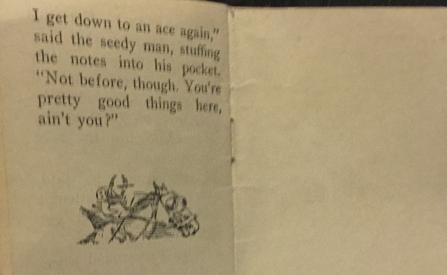 I get down to an ace again,"
said the seedy man, stuffing
the notes into his pocket.
"Not before, though. You're
pretty good things here,
ain't you?"